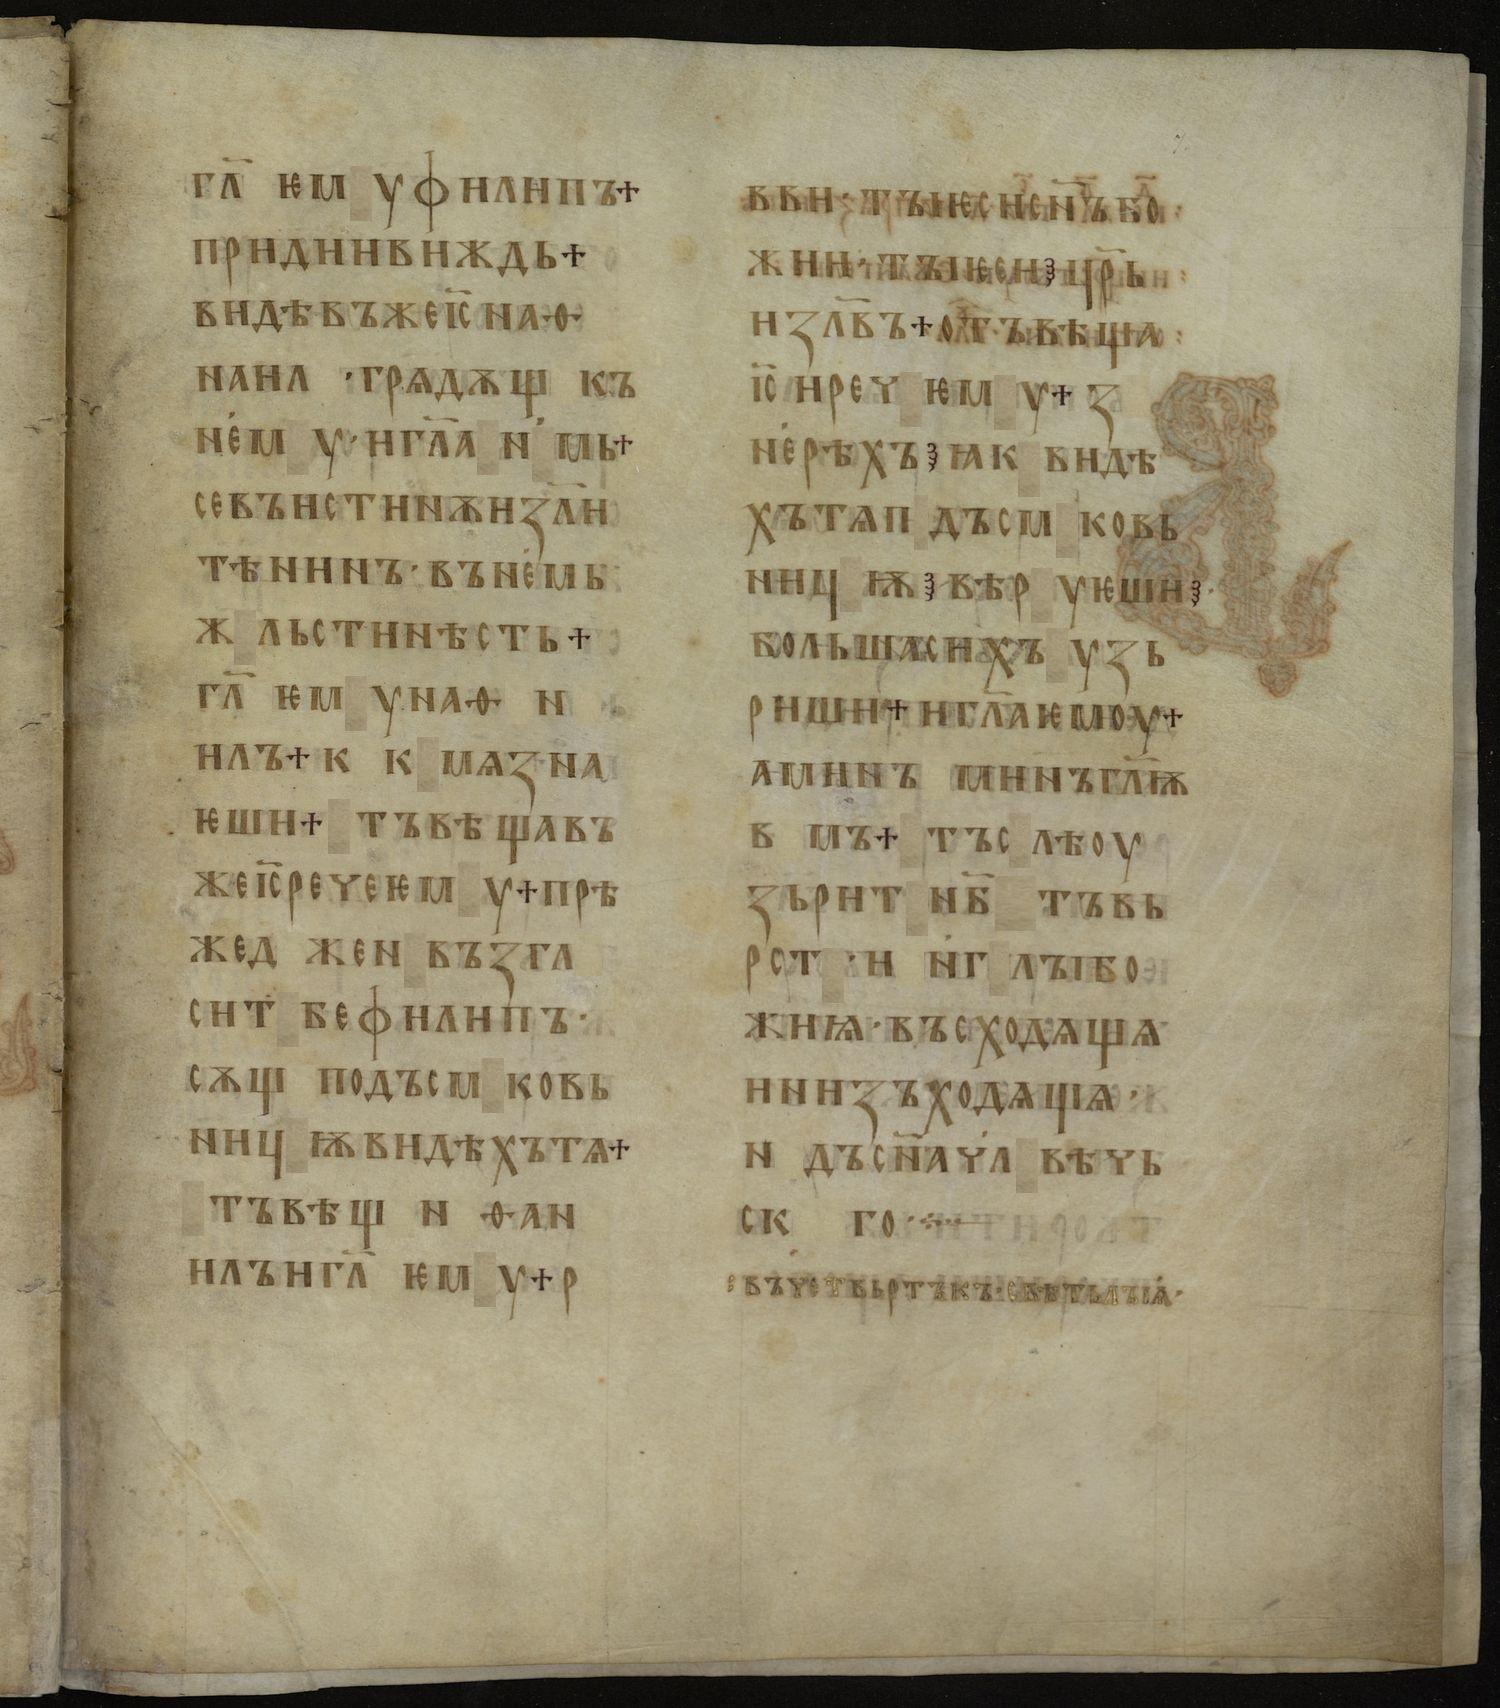 гл҃ ѥм уфилипъ+
придиивиждь+
видѣвъжеіс҃наѳ
наил ·грѧдѫщ къ
нем у·игл҃а н мь+
севъистинѫизл҃и
тѣнинъ·вънемь
ж льстинѣсть+
гл҃ ѥм унаѳ н
илъ+к к мѧзна
ѥши+ тъвѣщавъ
жеіс҃речеѥм у+прѣ
жед жен възгла
сит бефилипъ·
сѫщ подъсм ковь
ниц ѭвидѣхътѧ+
тъвѣщ н ѳан
илъигл҃ ѥм у+р
вви·тъіѥсисн҃ъбо
жии·тъіѥси цр҃ь
изл҃въ+отъвѣща
іс҃ иреч ѥм у+ з
нерѣхъ ꙗк видѣ
хътѧп дъсм ковь
ниц ѭ вѣр уѥши
большасихъ узь
риши+игл҃аѥмоу+
аминъ минъгл҃ѭ
в мъ+ тъс лѣоу
зьрит нб҃ тъвь
рст ·и нг лъібо
жиꙗ·въсходѧщѧ
инизъходѧщѧ·
н дъсн҃ачл вѣчь
ск го
въчетвьртъкъ·свѣтьлъіѧ·